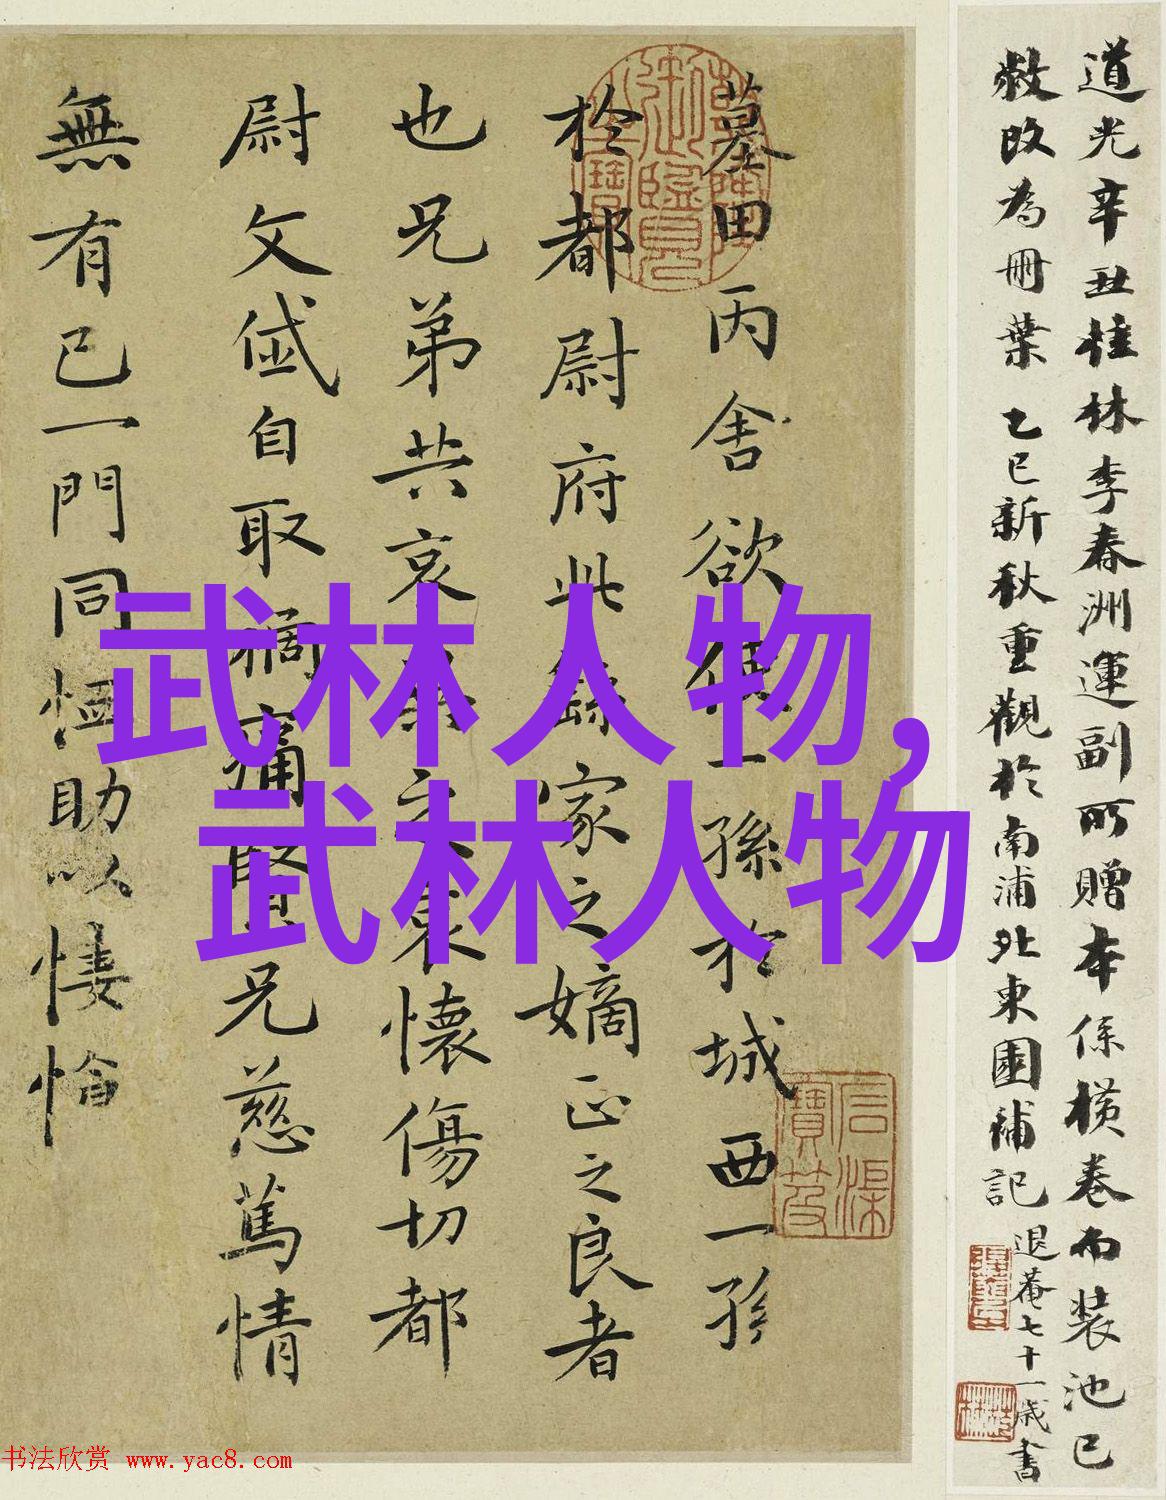 道光辛丑桂林李春洲運副所贈本係橫卷而裝池已
敝改為冊葉 乙巳新秋重觀於南浦北東園補記 退菴七十一歲書
墓田丙舍欲使一孫於城西一孫
於都尉府此繇家之嫡正之良者
也兄弟共哀異之哀懷傷切都
尉文岱自取禍痛賢兄慈篤情
無有已一門同恤助以悽愴
武林人物,
武林人物
书法欣赏 www.yac8.com